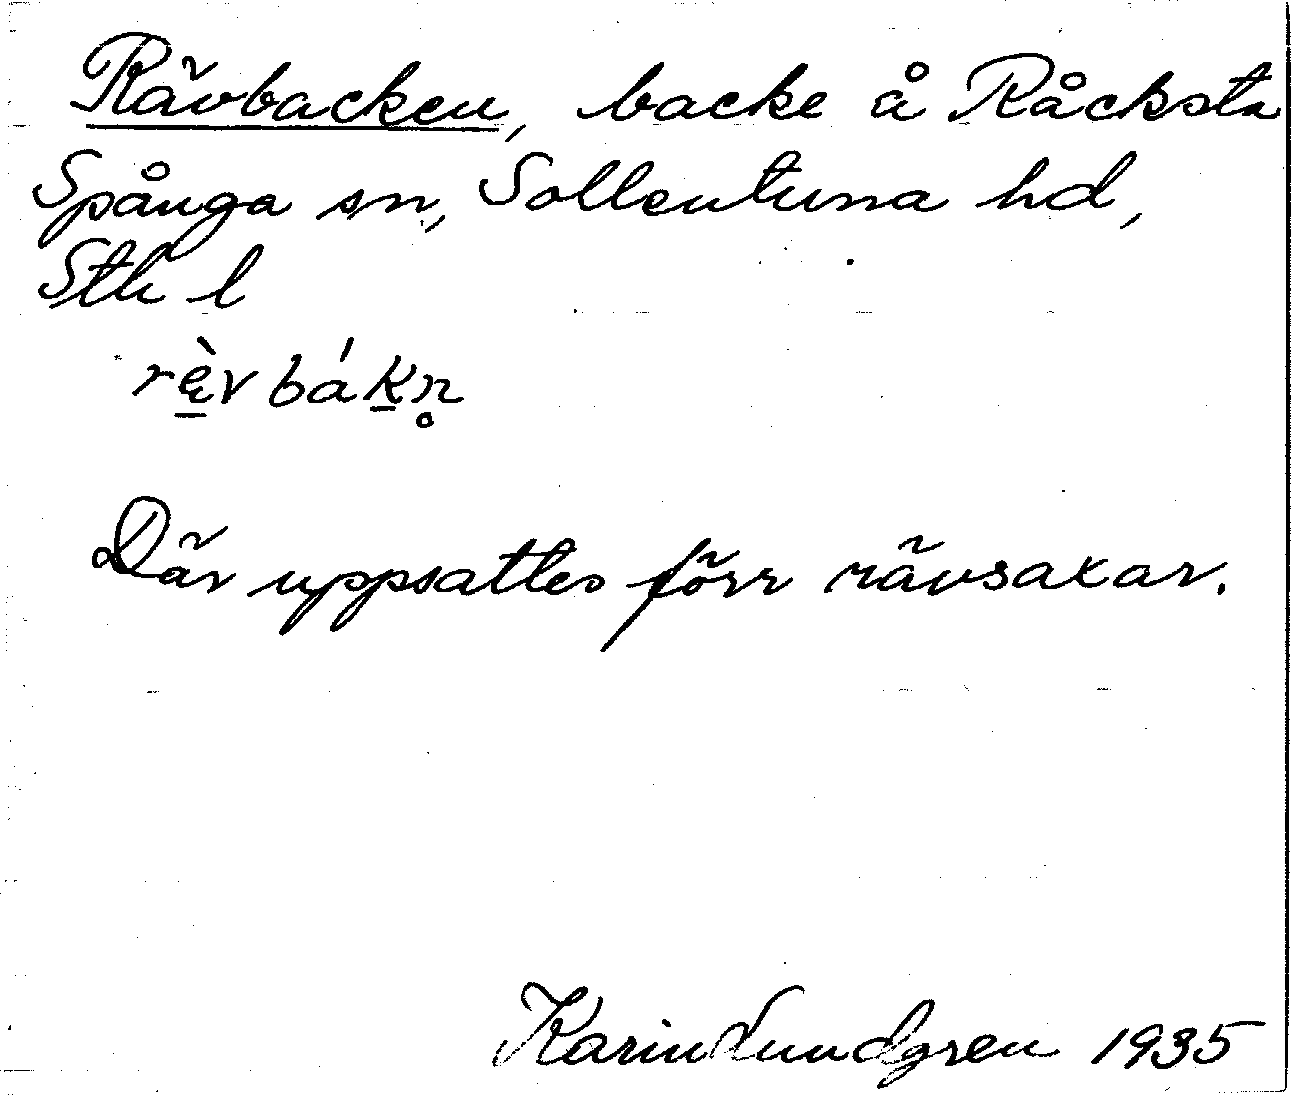 Rävbacken, backe å Råcksta
Spånga sn, Sollentuna hd,
Sth l
rę̀v bákn̥
Där uppsattes förr rävsaxar.
Karin Lundgren 1935